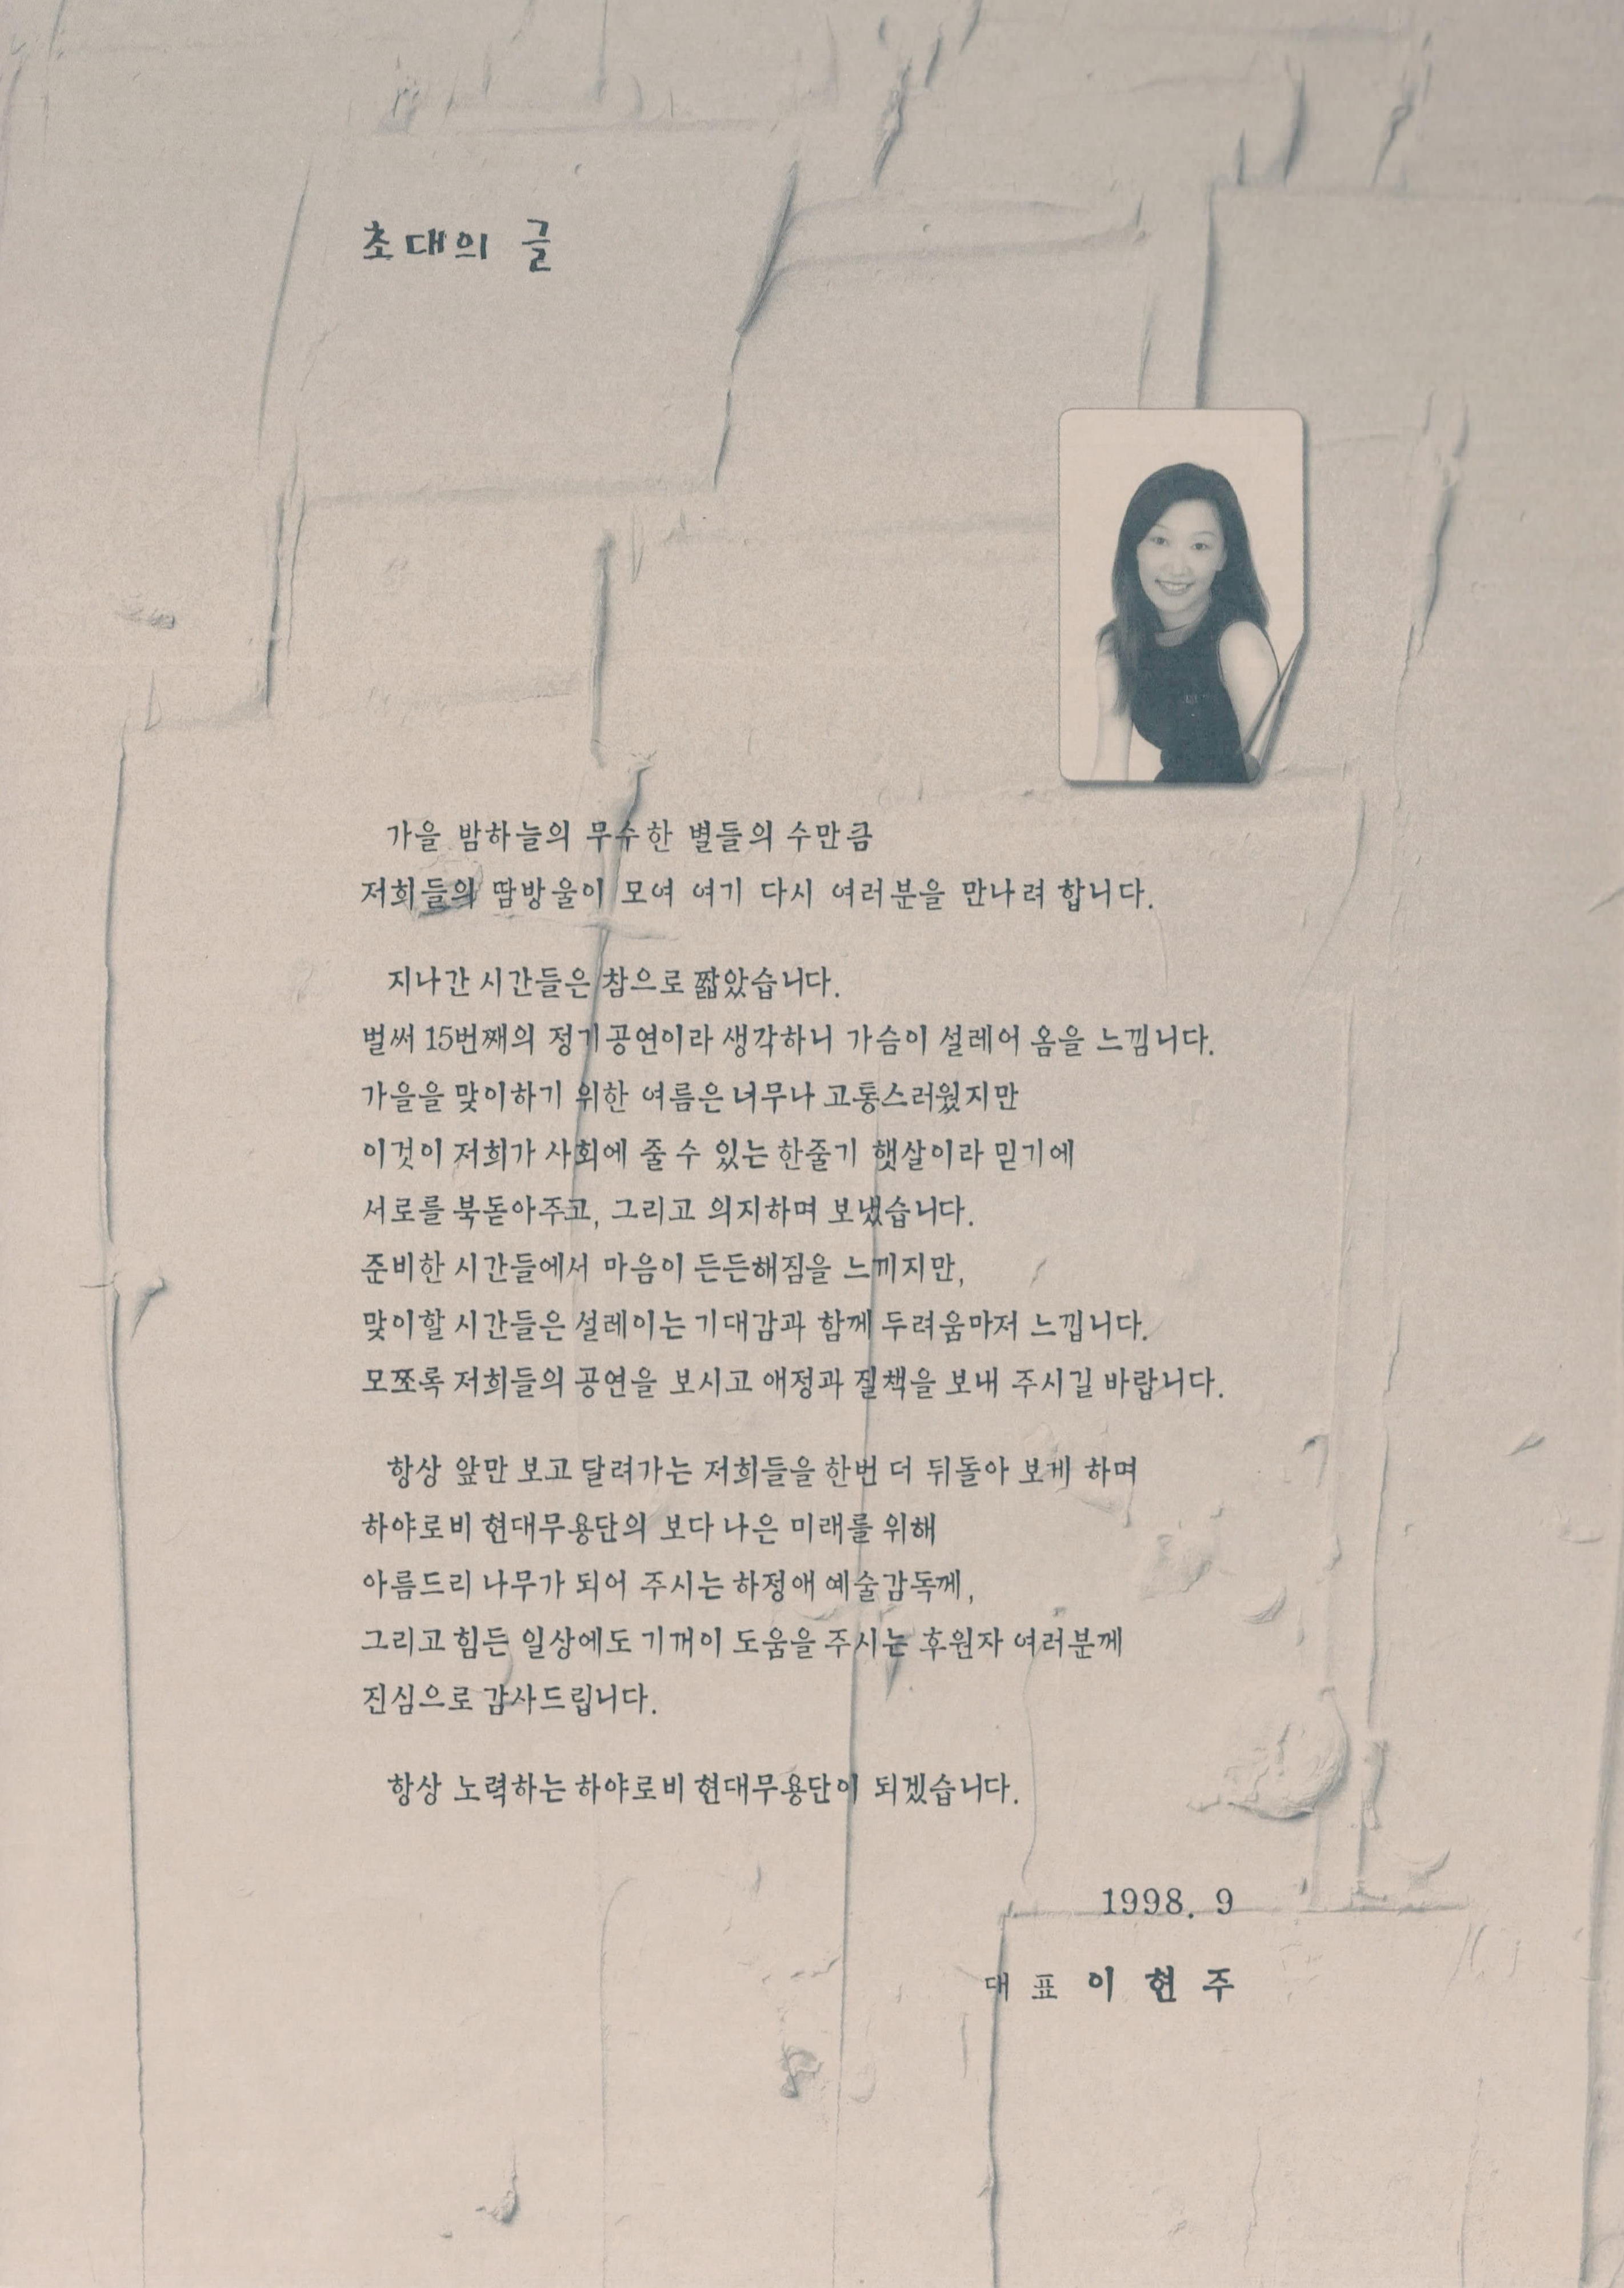 초대의 글
가을 밤하늘의 무수한 별들의 수만큼
저희들의 땀방울이 모여 여기 다시 여러분을 만나려 합니다.
지나간 시간들은 참으로 짧았습니다.
벌써 15번째의 정기공연이라 생각하니 가슴이 설레어 옴을 느낍니다.
가을을 맞이하기 위한 여름은 너무나 고통스러웠지만
이것이 저희가 사회에 줄 수 있는 한줄기 햇살이라 믿기에
서로를 북돋아주고, 그리고 의지하며 보냈습니다.
준비한 시간들에서 마음이 든든해짐을 느끼지만,
맞이할 시간들은 설레이는 기대감과 함께 두려움마저 느낍니다.
모쪼록 저희들의 공연을 보시고 애정과 질책을 보내 주시길 바랍니다.
항상 앞만 보고 달려가는 저희들을 한번 더 뒤돌아 보게 하며
하야로비 현대무용단의 보다 나은 미래를 위해
아름드리 나무가 되어 주시는 하정애 예술감독께,
그리고 힘든 일상에도 기꺼이 도움을 주시는 후원자 여러분께
진심으로 감사드립니다.
항상 노력하는 하야로비 현대무용단이 되겠습니다.
1998. 9
대 표 이 현 주